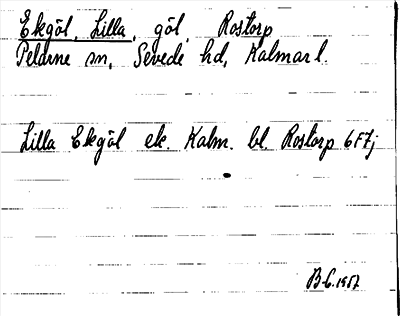 Ekgöl, Lilla, göl, Rostorp
Pelarne sn, Sevede hd, Kalmar l.
Lilla Ekgöl ek. Kalm. bl. Rostorp 6F7j
1957